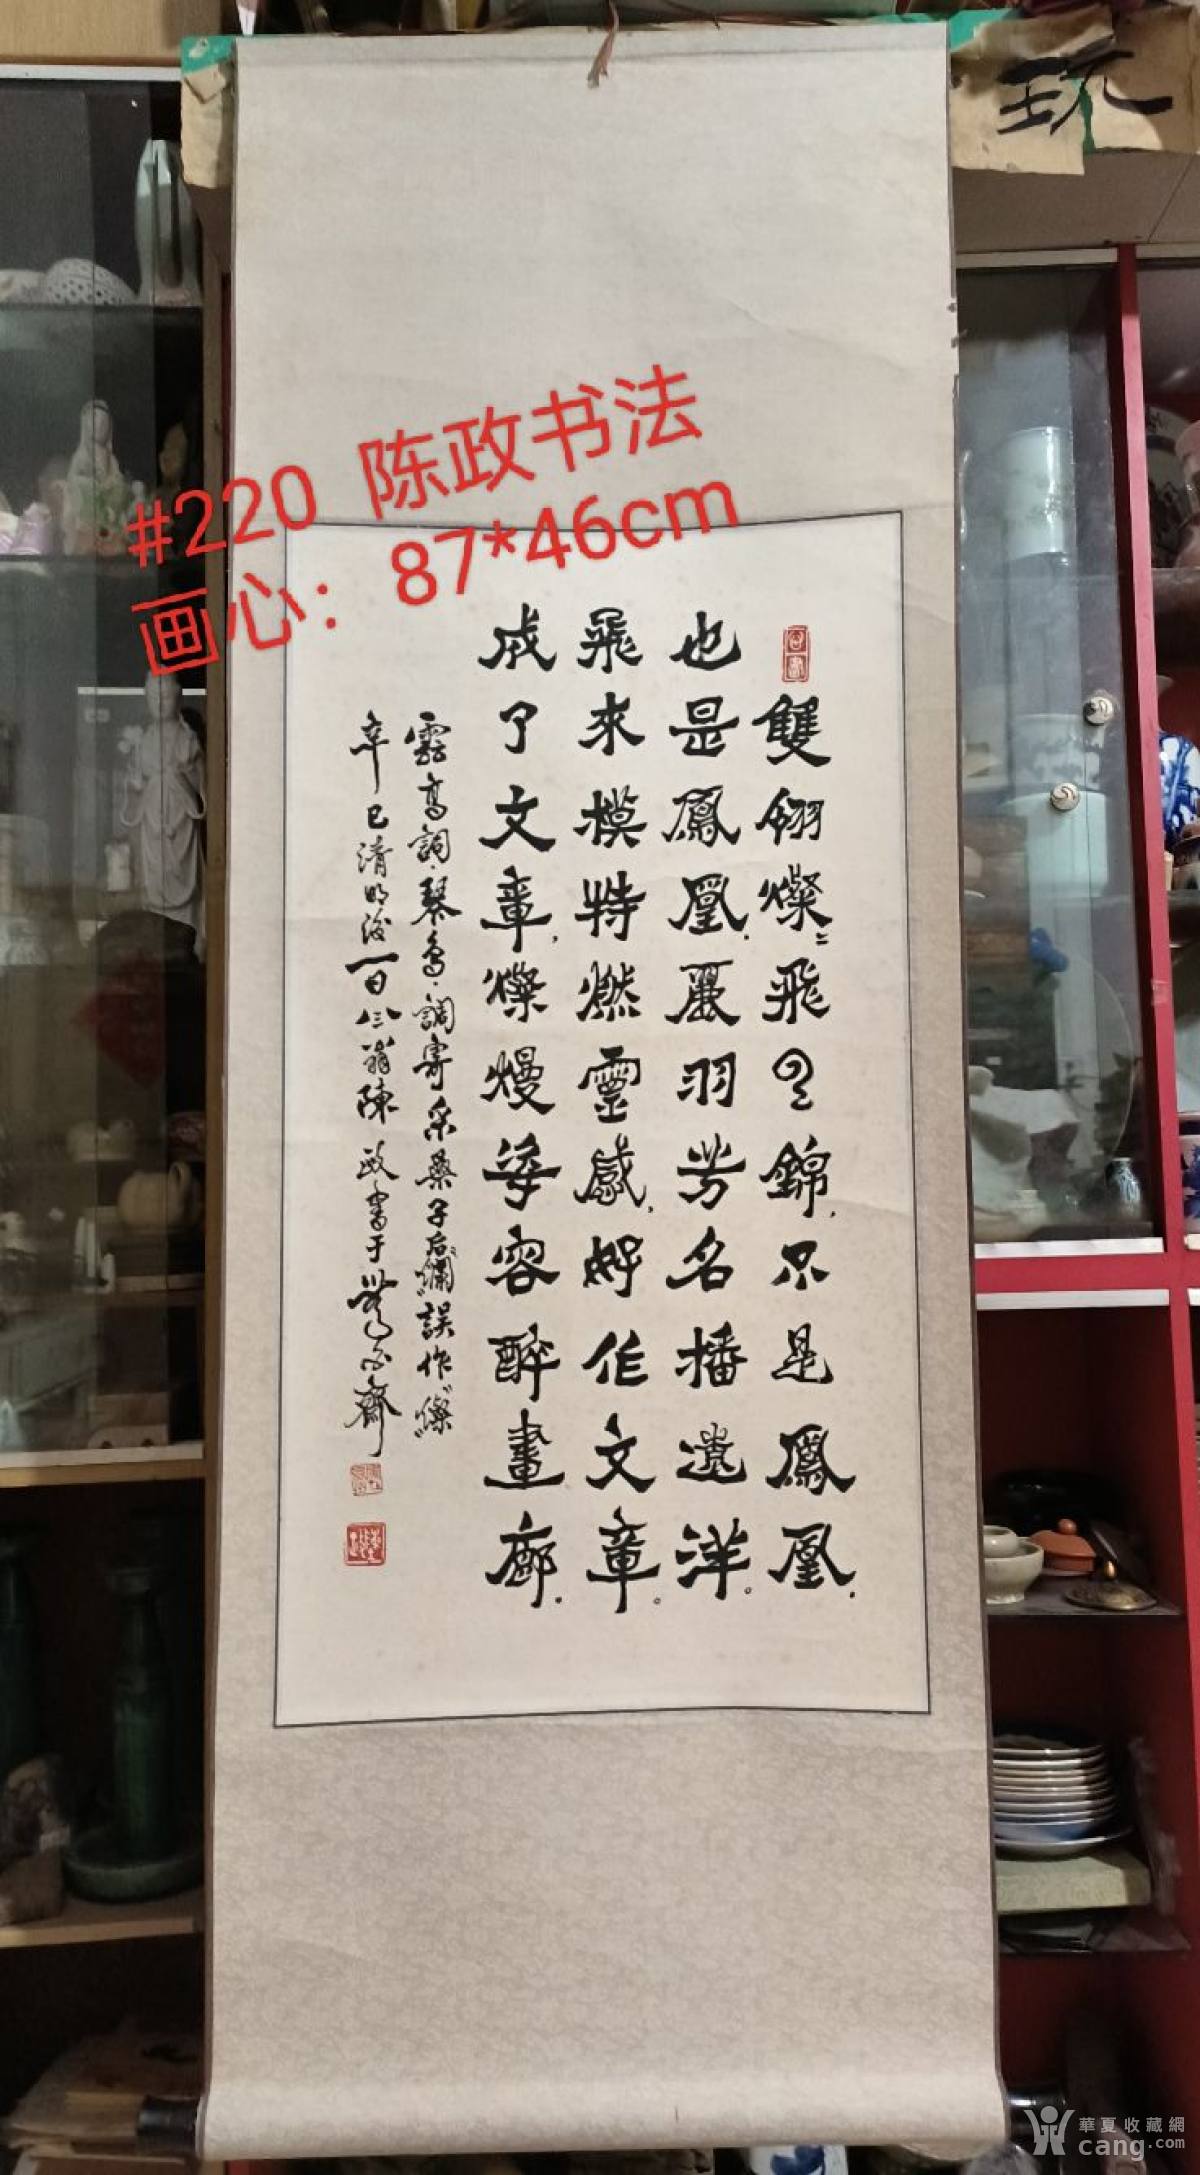 玩
#220 陈政书法
画心：87*46cm
雙翎燦〻飛云錦，不是鳳凰，
也是鳳凰，麗羽芳名播遠洋。
飛來模特燃靈感，好作文章。
成了文章，燦熳姿容醉畫廊。
高詞·琴鳥·調寄采桑子后"斕"誤作"燦"
辛巳清明後一日八三翁陳政書于齋
華夏收藏網
cang.com